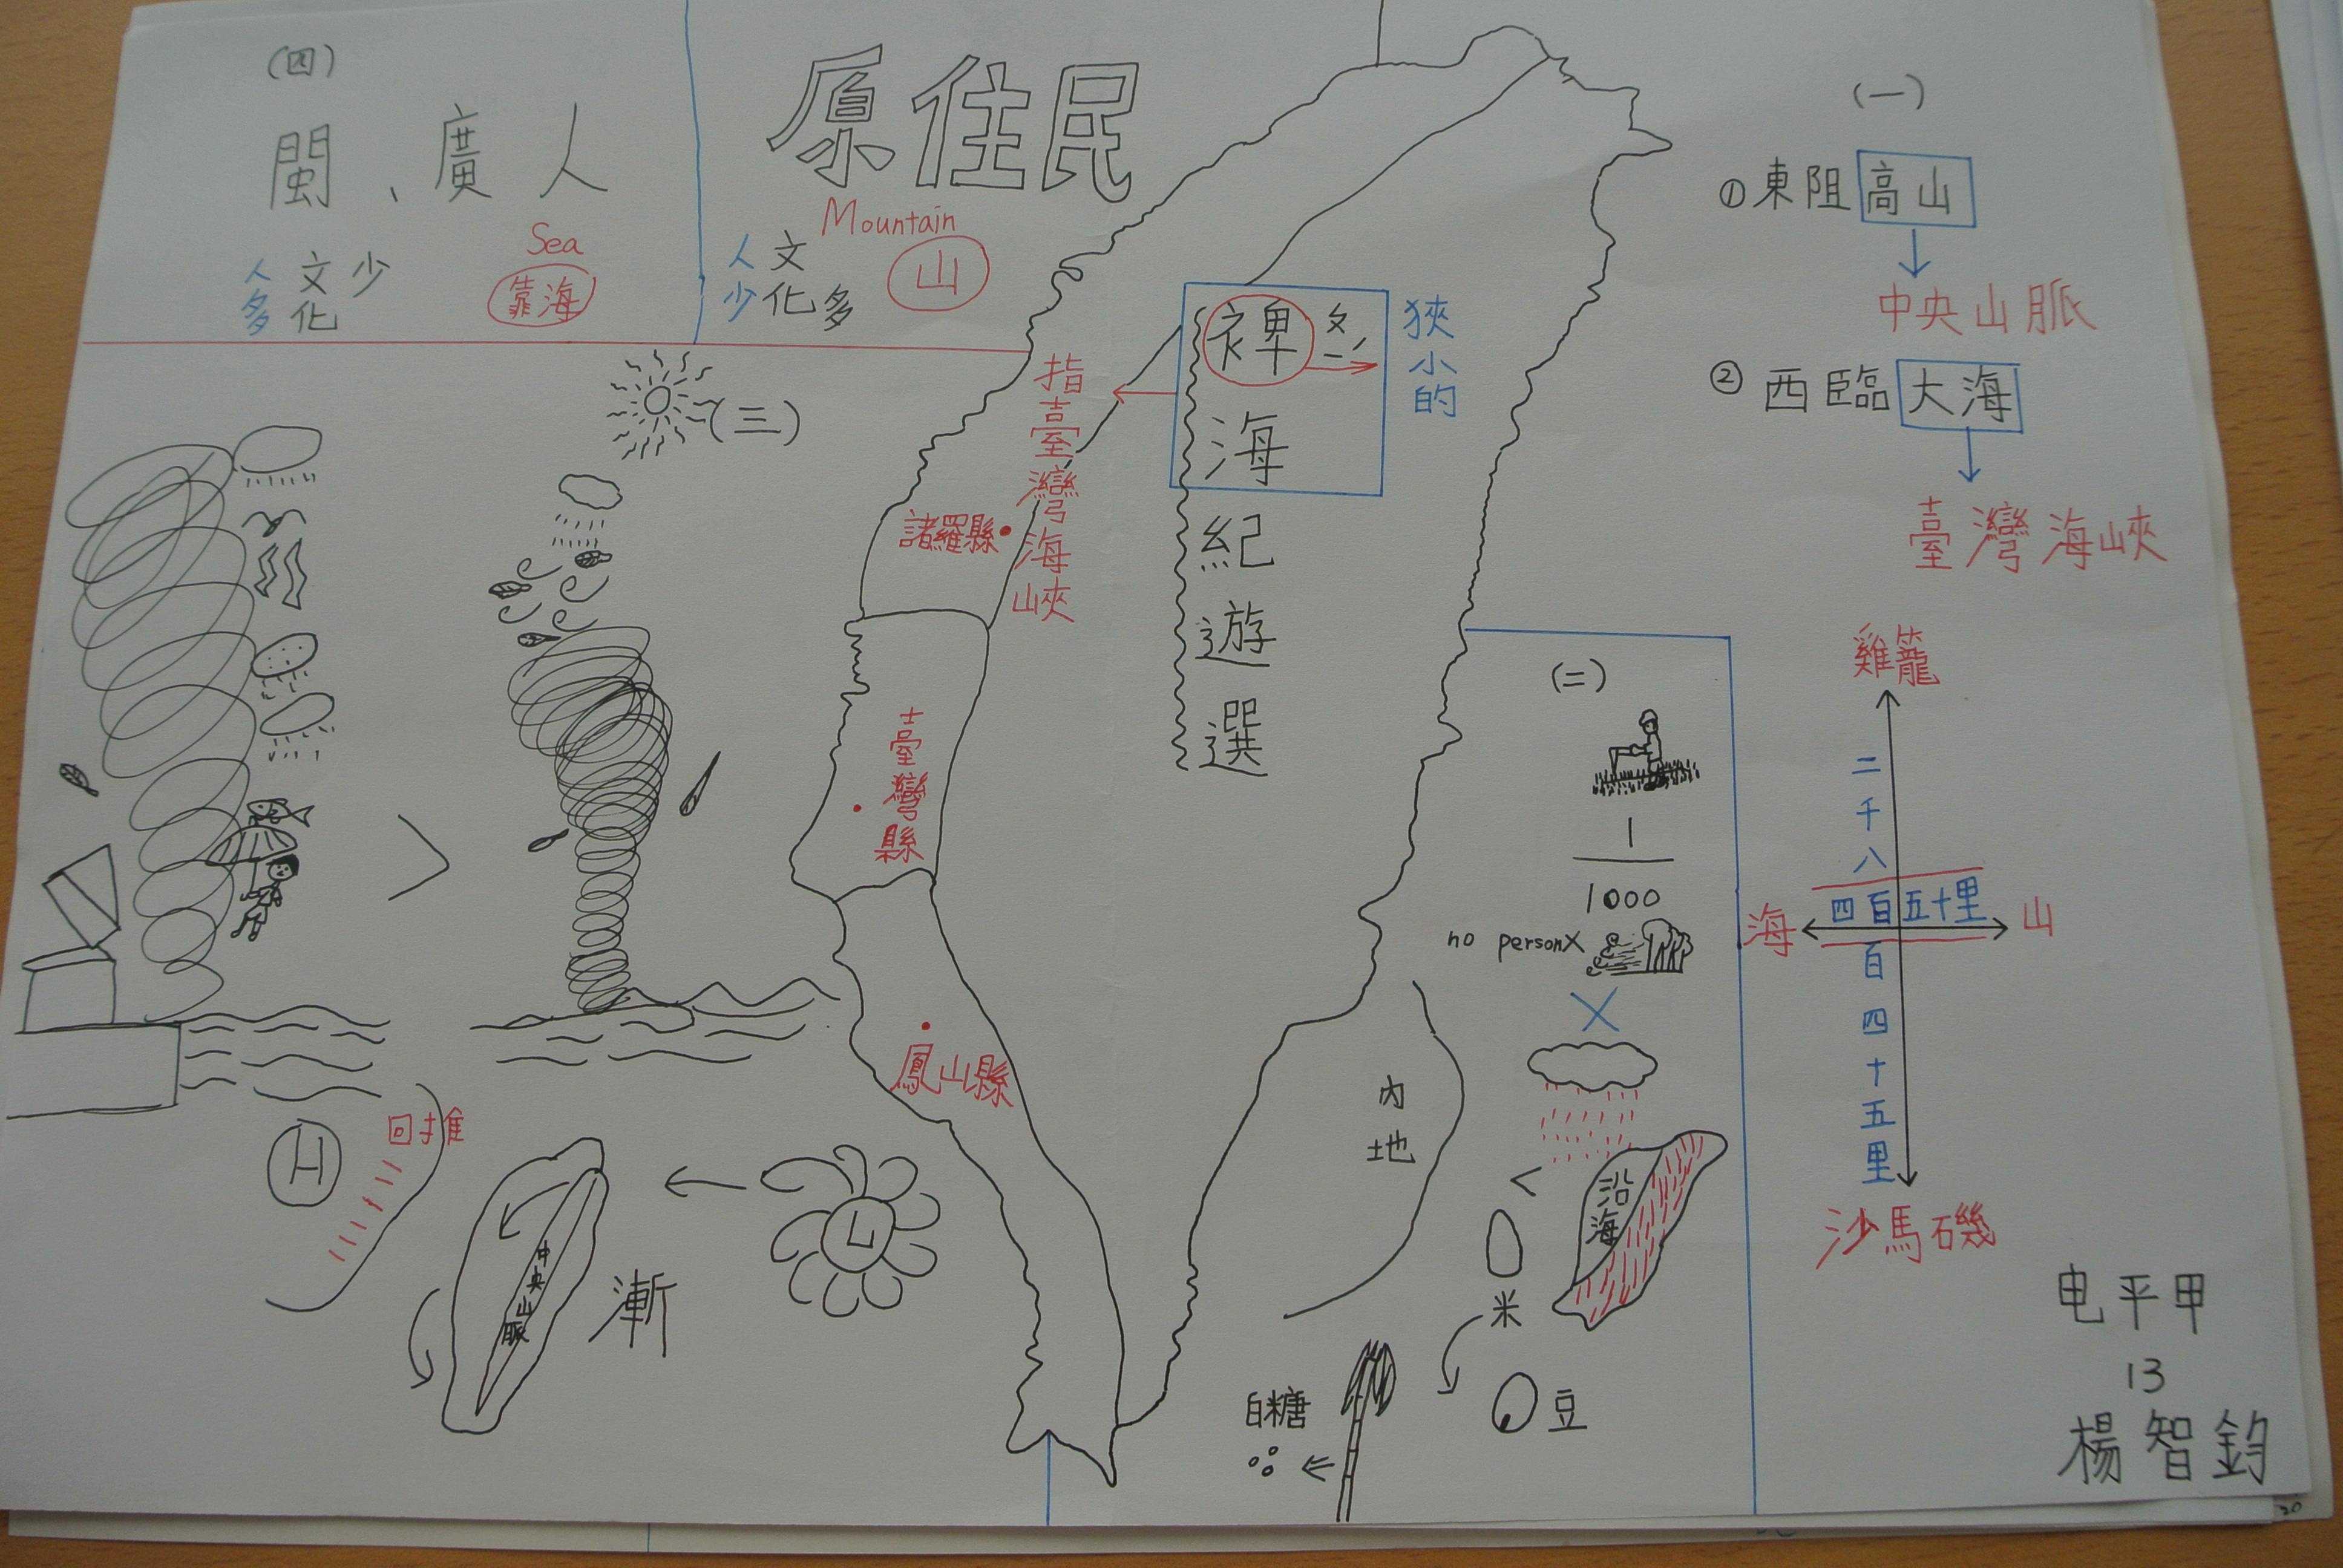 (四)
閩、廣人
Sea
靠海
人多
文化少
原住民
Mountain
山
人少
文化多
裨海紀遊選
ㄆㄧˊ
狹小的
指臺灣海峽
諸羅縣
臺灣縣
鳳山縣
(一)
①東阻高山
中央山脈
②西臨大海
臺灣海峽
雞籠
二千八百四十五里
四百五十里
海
山
沙馬磯
(二)
1
1000
no person X
X
沿海
<
米
豆
白糖
內地
(三)
>
H
回推
中央山脈
漸
L
电平甲
13
楊智鈞
20